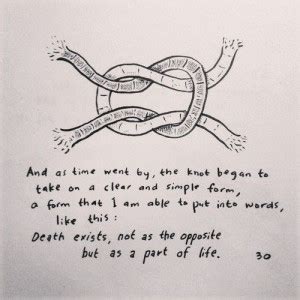 And as time went by, the knot began to
take on a clear and simple form,
a form that I am able to put into words,
like this:
Death exists, not as the opposite
but as a part of life.
30